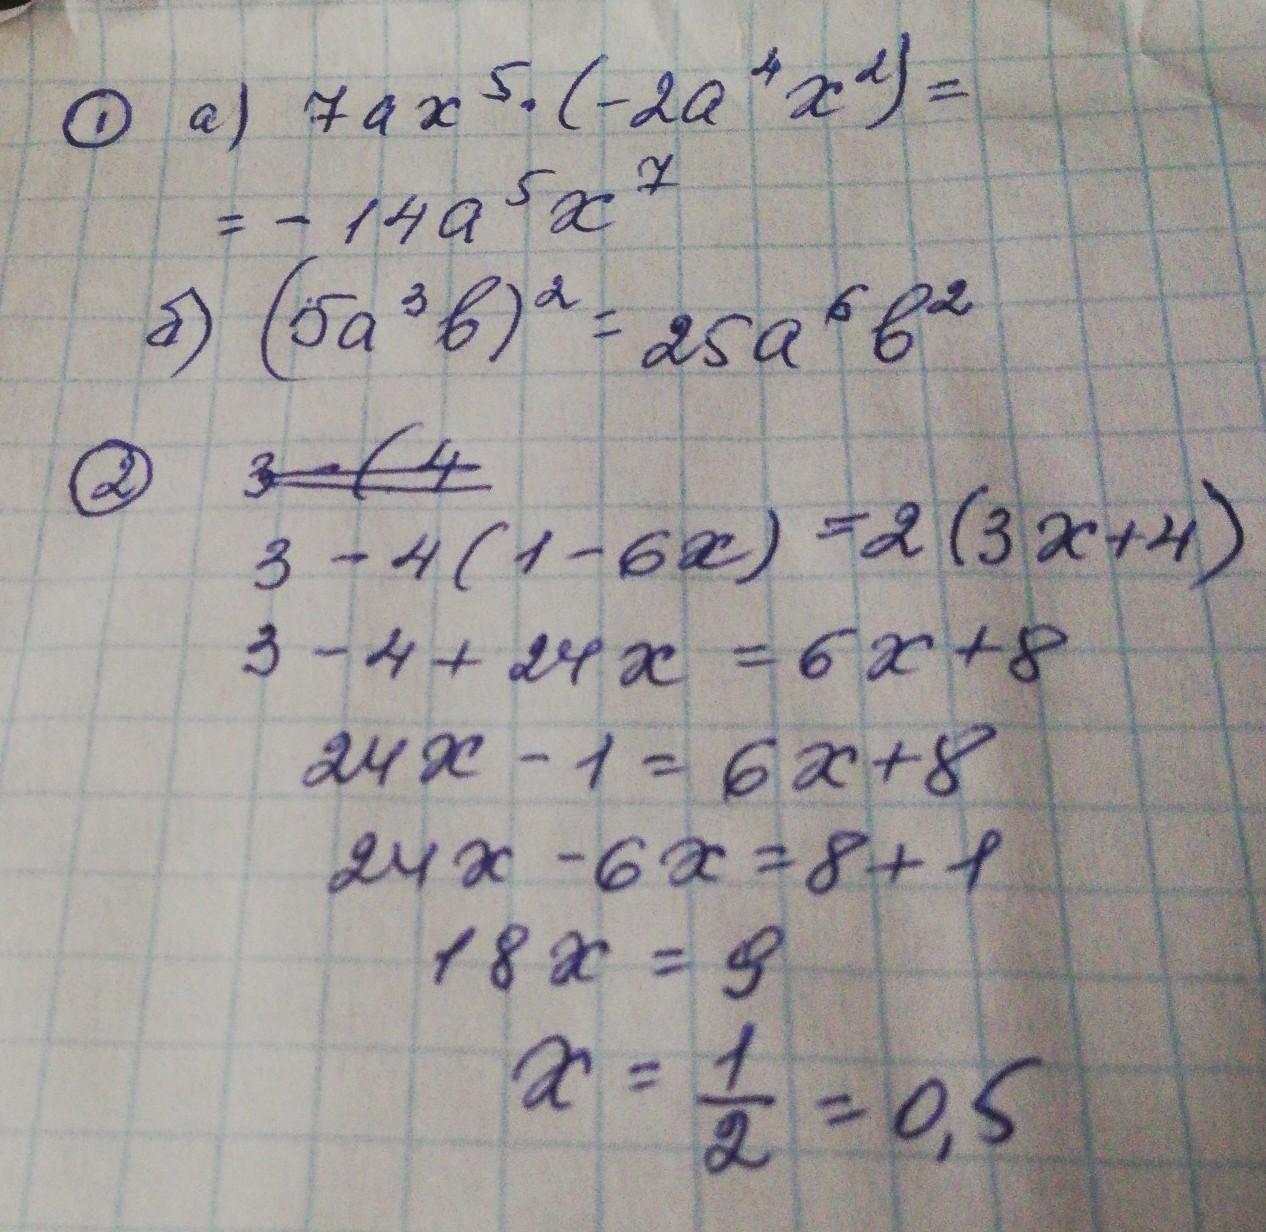 ① а) 7ax⁵·(-2a⁴x²)=
=-14a⁵x⁷
б) (5a³b)²=25a⁶b²
② 3-(4
3-4(1-6x)=2(3x+4)
3-4+24x=6x+8
24x-1=6x+8
24x-6x=8+1
18x=9
x=1/2=0,5